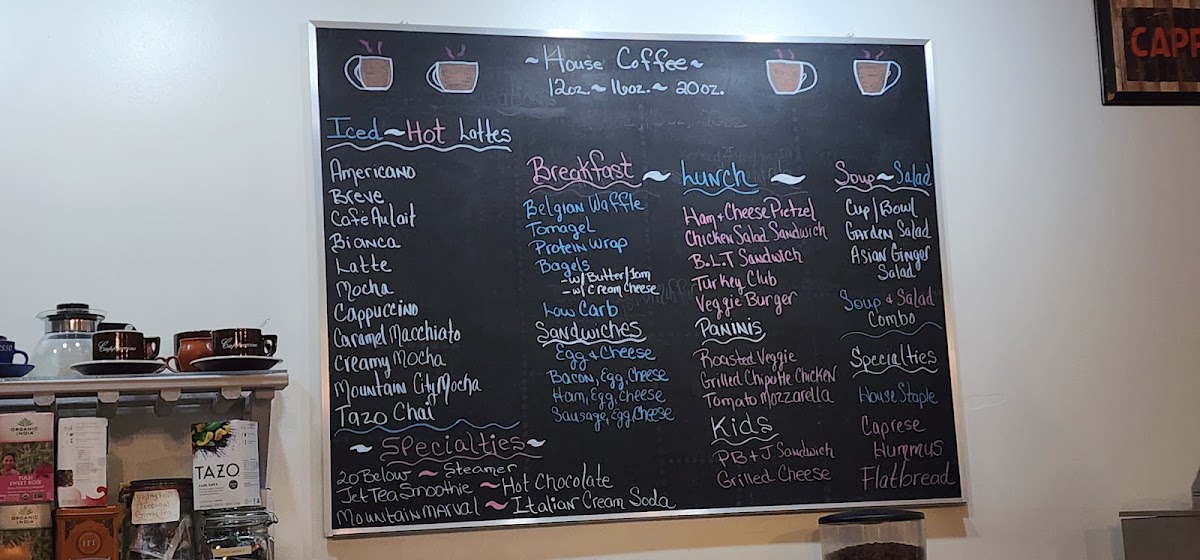 ~House Coffee~
12oz.~16oz.~20oz.
Iced~Hot Lattes
Americano
Breve
Cafe Au lait
Bianca
Latte
Mocha
Cappuccino
Caramel Macchiato
Creamy Mocha
Mountain City Mocha
Tazo Chai
~Specialties~
20 Below ~ Steamer
Jet Tea Smoothie ~ Hot Chocolate
Mountain Marval ~ Italian Cream Soda
Breakfast ~
Belgian Waffle
Tomagel
Protein Wrap
Bagels
-w/ Butter/Jam
-w/ Cream Cheese
Low Carb
Sandwiches
Egg & Cheese
Bacon, Egg, Cheese
Ham, Egg, Cheese
Sausage, Egg, Cheese
Lunch ~
Ham + Cheese Pretzel
Chicken Salad Sandwich
B.L.T Sandwich
Turkey Club
Veggie Burger
Paninis
Roasted Veggie
Grilled Chipotle Chicken
Tomato Mozzarella
Kids
PB+J Sandwich
Grilled Cheese
Soup~Salad
Cup/Bowl
Garden Salad
Asian Ginger
Salad
Soup & Salad
Combo
Specialties
House Staple
Caprese
Hummus
Flatbread
CAPP
Cappuccino
Cappuccino
ORGANIC
INDIA
TULSI
SWEET ROSE
TAZO
EARL GREY
ORGANIC
INDIA